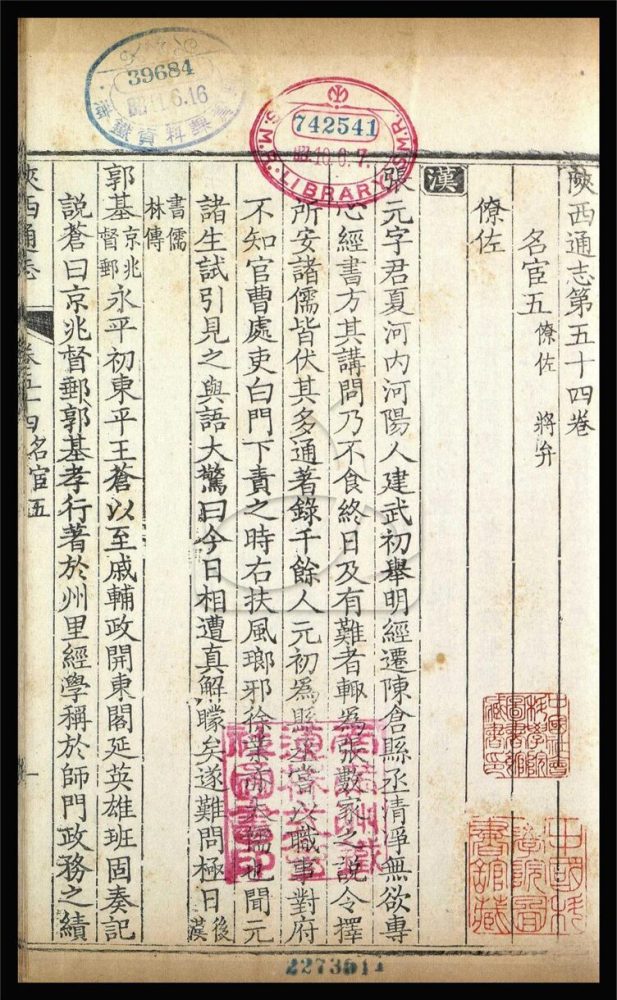 39684
11.6.16
鐵資料
742541
昭10.6.7.
S.M.R. LIBRARY S.M.R.
陝西通志第五十四卷
名宦五 僚佐 將弁
僚佐
漢
張元字君夏河內河陽人建武初舉明經遷陳倉縣丞清淨無欲專
心經書方其講問乃不食終日及有難者輒為張數家之說令擇
所安諸儒皆伏其多通著錄千餘人元初為縣丞嘗以職事對府
不知官曹處吏白門下責之時右扶風瑯邪徐業亦大儒也聞元
諸生試引見之與語大驚曰今日相遭真解矇矣遂難問極日 後漢
書儒林傳
郭基 京兆督郵 永平初東平王蒼以至戚輔政開東閣延英雄班固奏記
說蒼曰京兆督郵郭基孝行著於州里經學稱於師門政務之績
陝西通志 卷五十四 名宦五
一
中國科學院圖書館藏
2273514